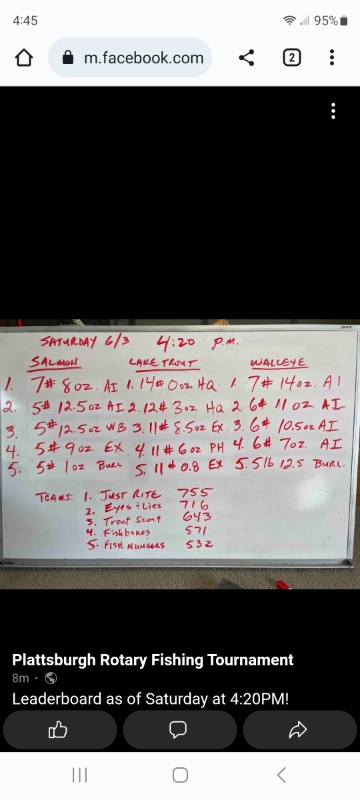 4:45
95%
m.facebook.com
2
SATURDAY 6/3 4:20 P.M.
SALMON LAKE TROUT WALLEYE
1. 7# 8oz. AI 1. 14# 0oz HQ 1. 7# 14oz. AI
2. 5# 12.5oz AI 2. 12# 3oz HQ 2. 6# 11 oz. AI
3. 5# 12.5oz WB 3. 11# 8.5oz EX 3. 6# 10.5oz AI
4. 5# 9oz. EX 4. 11# 6oz PH 4. 6# 7oz. AI
5. 5# 1oz BURL 5. 11# 0.8 EX 5. 5lb 12.5 BURL.
TEAMS: 1. JUST RITE 755
2. Eyes & Lies 716
3. Trout Scout 643
4. Fishbones 571
5. FISH MUNGERS 532
Plattsburgh Rotary Fishing Tournament
8m ·
Leaderboard as of Saturday at 4:20PM!